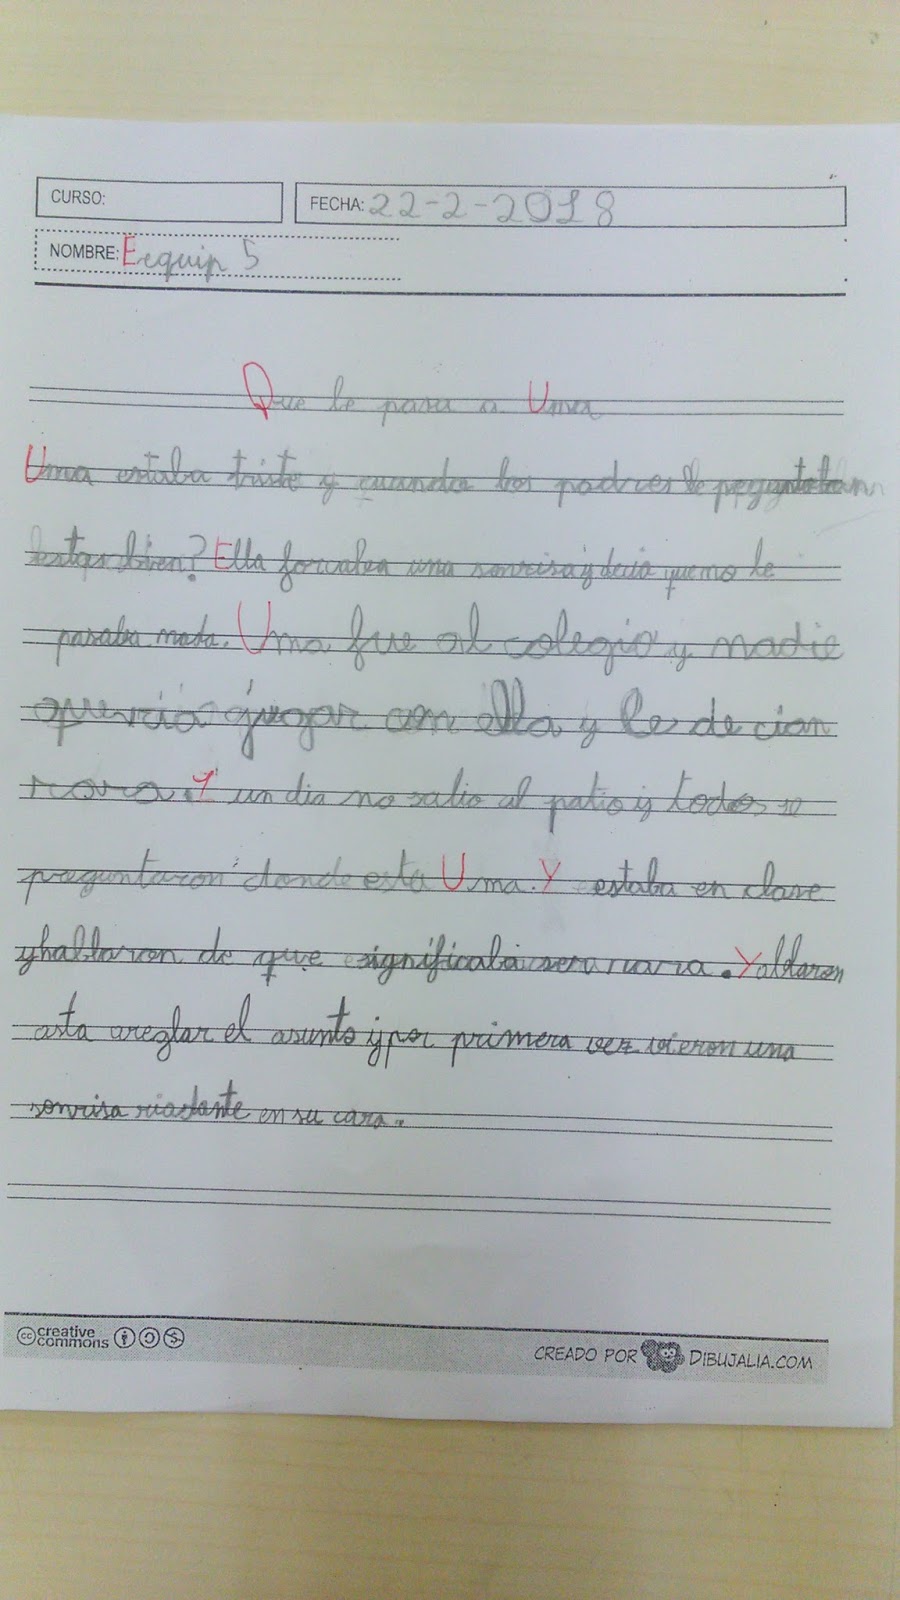 CURSO:
FECHA: 22-2-2018
NOMBRE: Eequip 5
Que le pasa a Uma
Uma estaba triste y cuando los padres le peguntaban
estas bien? Ella forzaba una sonrisa y decia que no le
pasaba nada. Uma fue al colegio y nadie
queria jugar con ella y le decian
rara. Y un dia no salio al patio y todos se
preguntaron donde esta Uma. Y estaba en clase
y hablaron de que significaba ser rara. Y ablaron
asta areglar el asunto y por primera vez vieron una
sonrisa en su cara.
creative commons
CREADO POR DIBUJALIA.COM